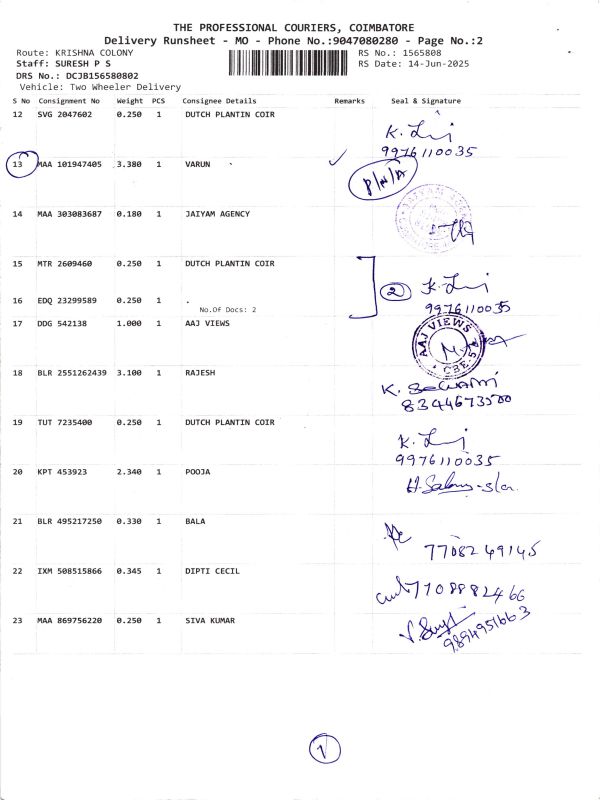 THE PROFESSIONAL COURIERS, COIMBATORE
Delivery Runsheet - MO - Phone No.:9047080280 - Page No.:2
Route: KRISHNA COLONY RS No.: 1565808
Staff: SURESH P S RS Date: 14-Jun-2025
DRS No.: DCJB156580802
Vehicle: Two Wheeler Delivery
S No Consignment No Weight PCS Consignee Details Remarks Seal & Signature
12 SVG 2047602 0.250 1 DUTCH PLANTIN COIR
9976110035
13 MAA 101947405 3.380 1 VARUN
P/N/A
14 MAA 303083687 0.180 1 JAIYAM AGENCY
15 MTR 2609460 0.250 1 DUTCH PLANTIN COIR
2
16 EDQ 23299589 0.250 1 .
No.Of Docs: 2
9976110035
17 DDG 542138 1.000 1 AAJ VIEWS
AAJ VIEWS
CBE-5
18 BLR 2551262439 3.100 1 RAJESH
8344673500
19 TUT 7235400 0.250 1 DUTCH PLANTIN COIR
9976110035
20 KPT 453923 2.340 1 POOJA
21 BLR 495217250 0.330 1 BALA
7708249145
22 IXM 508515866 0.345 1 DIPTI CECIL
7708882466
23 MAA 869756220 0.250 1 SIVA KUMAR
9894951663
1